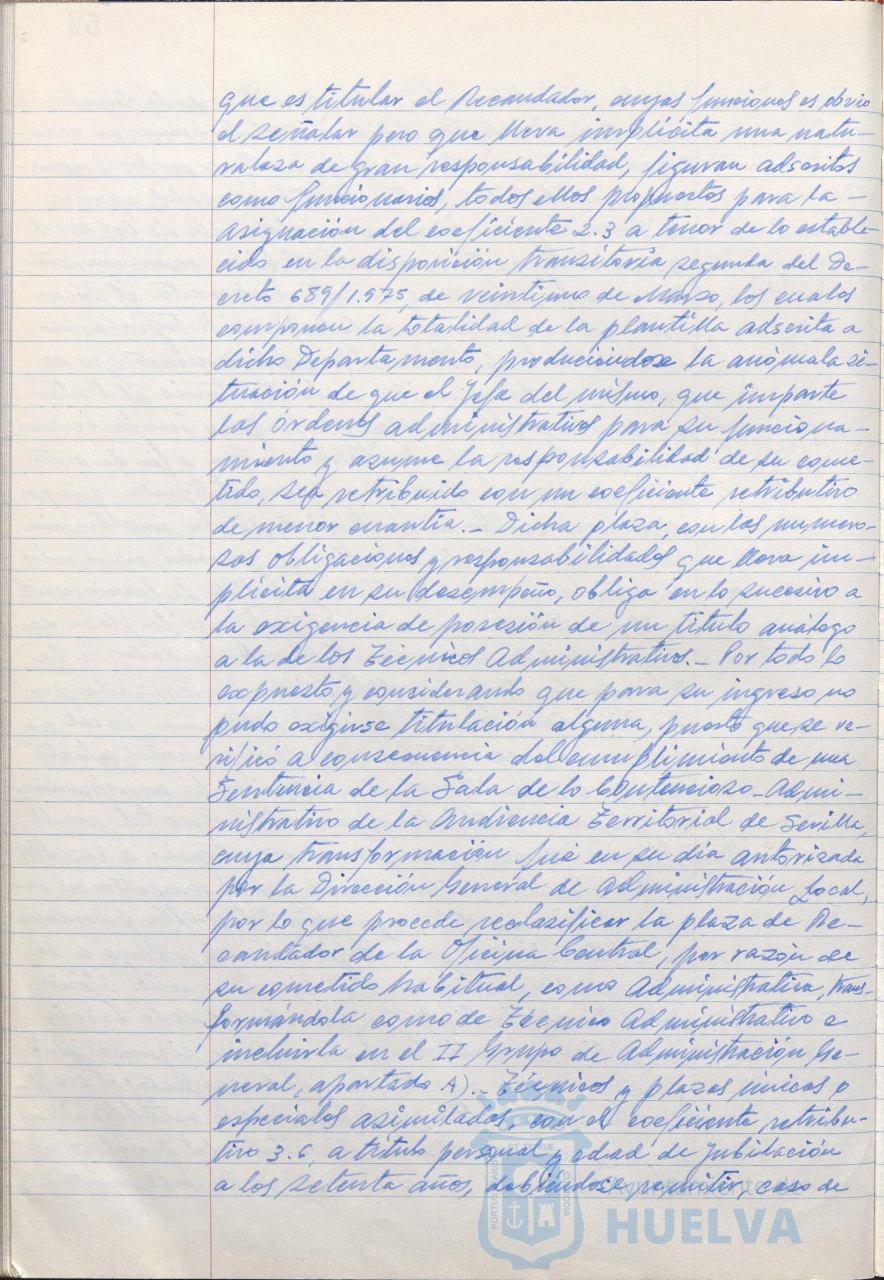 que es titular el Recaudador, cuyas funciones es obvio
el señalar pero que lleva implícita una natu-
raleza de gran responsabilidad, figuran adscritos
como funcionarios, todos ellos propuestos para la -
asignación del coeficiente 2.3 a tenor de lo estable-
cido en la disposición transitoria segunda del De-
creto 689/1.975, de veintiuno de Marzo, los cuales
componen la totalidad de la plantilla adscrita a
dicho Departamento, produciéndose la anómala si-
tuación de que el Jefe del mismo, que imparte
las órdenes administrativas para su funciona-
miento y asume la responsabilidad de su come-
tido, sea retribuido con un coeficiente retributivo
de menor cuantía.- Dicha plaza, con las numero-
sas obligaciones y responsabilidades que lleva im-
plícita en su desempeño, obliga en lo sucesivo a
la exigencia de posesión de un título análogo
a la de los Técnicos Administrativos.- Por todo lo
expuesto y considerando que para su ingreso no
pudo exigirse titulación alguna, puesto que se ve-
rificó a consecuencia del cumplimiento de una
Sentencia de la Sala de lo Contencioso-Admi-
nistrativo de la Audiencia Territorial de Sevilla,
cuya transformación fué en su día autorizada
por la Dirección General de Administración Local,
por lo que procede reclasificar la plaza de Re-
caudador de la Oficina Central, por razón de
su cometido habitual, como Administrativa, trans-
formándola como de Técnico Administrativo e
incluirla en el II Grupo de Administración Ge-
neral, apartado A).- Técnicos y plazas únicas o
especiales asimiladas, con el coeficiente retribu-
tivo 3.6, a título personal y edad de jubilación
a los setenta años, debiéndose remitir, caso de
HUELVA